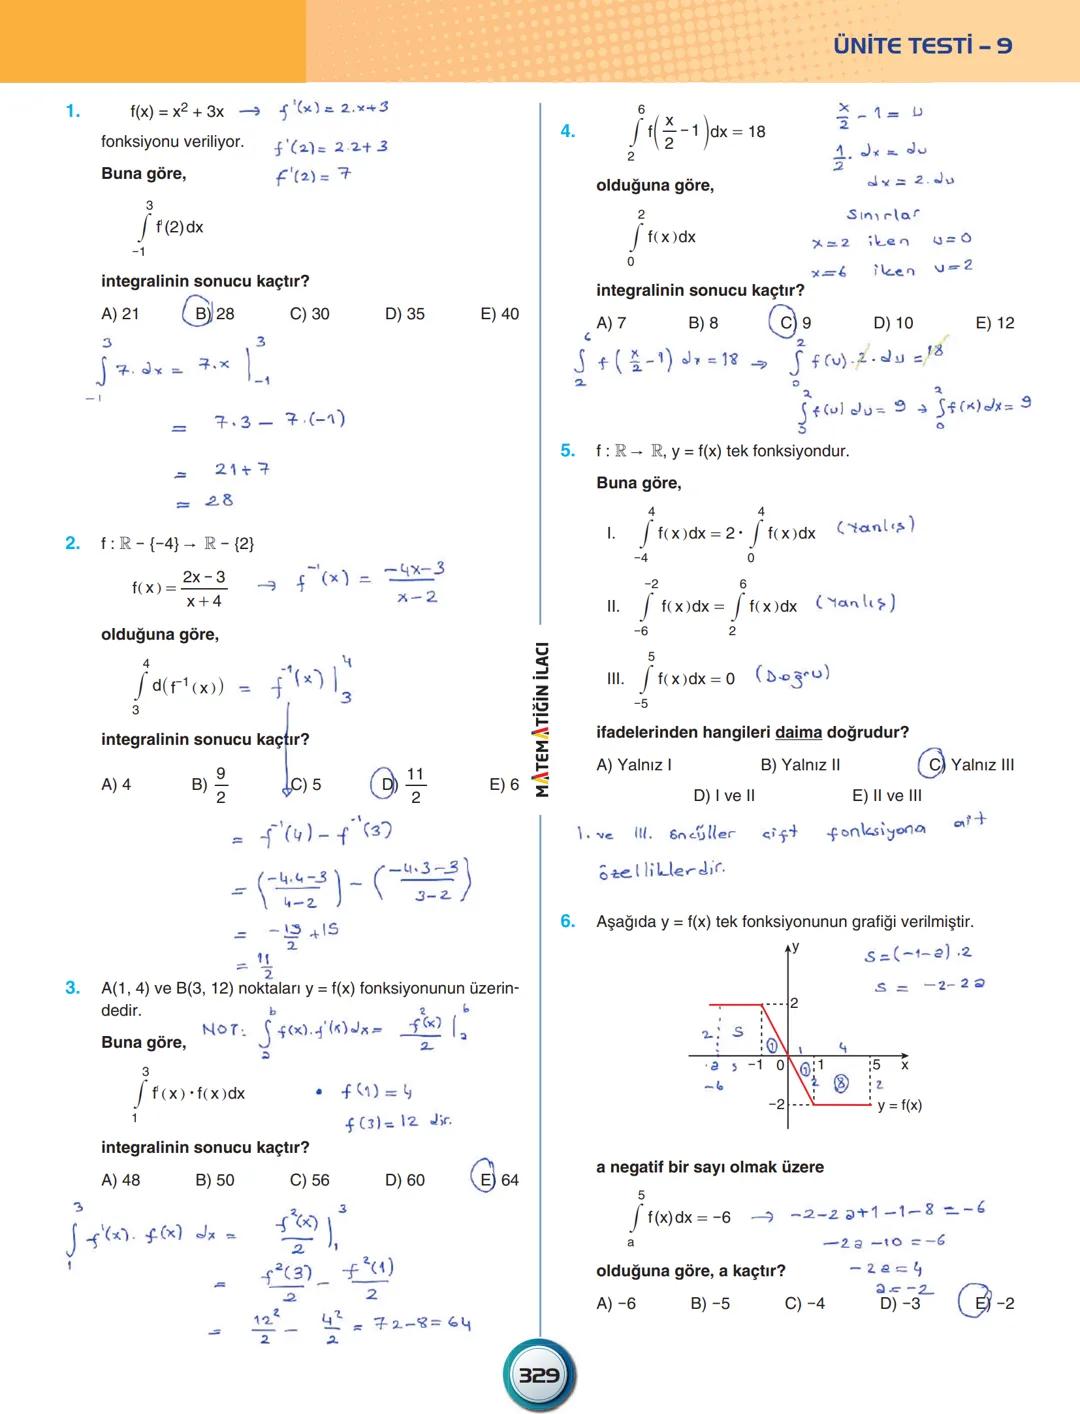 ÜNİTE TESTİ – 9
1. f(x) = x² + 3x → f'(x) = 2.x+3
fonksiyonu veriliyor. f'(2) = 2.2+3
Buna göre, f'(2) = 7
∫₋₁³ f'(2) dx
integralinin sonucu kaçtır?
A) 21 B) 28 C) 30 D) 35 E) 40
∫₋₁³ 7.dx = 7.x |₋₁³
= 7.3 – 7.(-1)
= 21+7
= 28
2. f : ℝ – {–4} → ℝ – {2}
f(x) = (2x – 3)/(x + 4) → f⁻¹(x) = (-4x-3)/(x-2)
olduğuna göre,
∫₃⁴ d(f⁻¹(x)) = f⁻¹(x) |₃⁴
integralinin sonucu kaçtır?
A) 4 B) 9/2 C) 5 D) 11/2 E) 6
= f⁻¹(4) – f⁻¹(3)
= ((-4.4-3)/(4-2)) – ((-4.3-3)/(3-2))
= -19/2 +15
= 11/2
3. A(1, 4) ve B(3, 12) noktaları y = f(x) fonksiyonunun üzerin-
dedir.
NOT: ∫ₐᵇ f(x).f'(x)dx = f²(x)/2 |ₐᵇ
Buna göre,
∫₁³ f'(x) · f(x) dx
• f(1) = 4
f(3) = 12 dir.
integralinin sonucu kaçtır?
A) 48 B) 50 C) 56 D) 60 E) 64
∫₁³ f'(x). f(x) dx = f²(x)/2 |₁³
= f²(3)/2 – f²(1)/2
= 12²/2 – 4²/2 = 72-8 = 64
MATEMATİĞİN İLACI
4. ∫₂⁶ f(x/2 – 1) dx = 18
x/2 - 1 = u
1/2. dx = du
dx = 2.du
olduğuna göre,
∫₀² f(x) dx
Sınırlar
x=2 iken u=0
x=6 iken u=2
integralinin sonucu kaçtır?
A) 7 B) 8 C) 9 D) 10 E) 12
∫₂⁶ f(x/2 -1) dx = 18 → ∫₀² f(u).2.du = 18
∫₀² f(u) du = 9 → ∫₀² f(x)dx = 9
5. f : ℝ → ℝ, y = f(x) tek fonksiyondur.
Buna göre,
I. ∫₋₄⁴ f(x)dx = 2 · ∫₀⁴ f(x)dx (Yanlış)
II. ∫₋₆⁻² f(x)dx = ∫₂⁶ f(x)dx (Yanlış)
III. ∫₋₅⁵ f(x)dx = 0 (Doğru)
ifadelerinden hangileri daima doğrudur?
A) Yalnız I B) Yalnız II C) Yalnız III
D) I ve II E) II ve III
I. ve III. öncüller çift fonksiyona ait
özelliklerdir.
6. Aşağıda y = f(x) tek fonksiyonunun grafiği verilmiştir.
y
S=(-1-a).2
S = -2-2a
2
2 S 1 1 4
a -1 0 1 5 x
-6 1 2 8 2
–2 y = f(x)
a negatif bir sayı olmak üzere
∫ₐ⁵ f(x) dx = –6 → -2-2a+1-1-8 = -6
-2a-10 = -6
-2a = 4
a = -2
olduğuna göre, a kaçtır?
A) –6 B) –5 C) –4 D) –3 E) –2
329